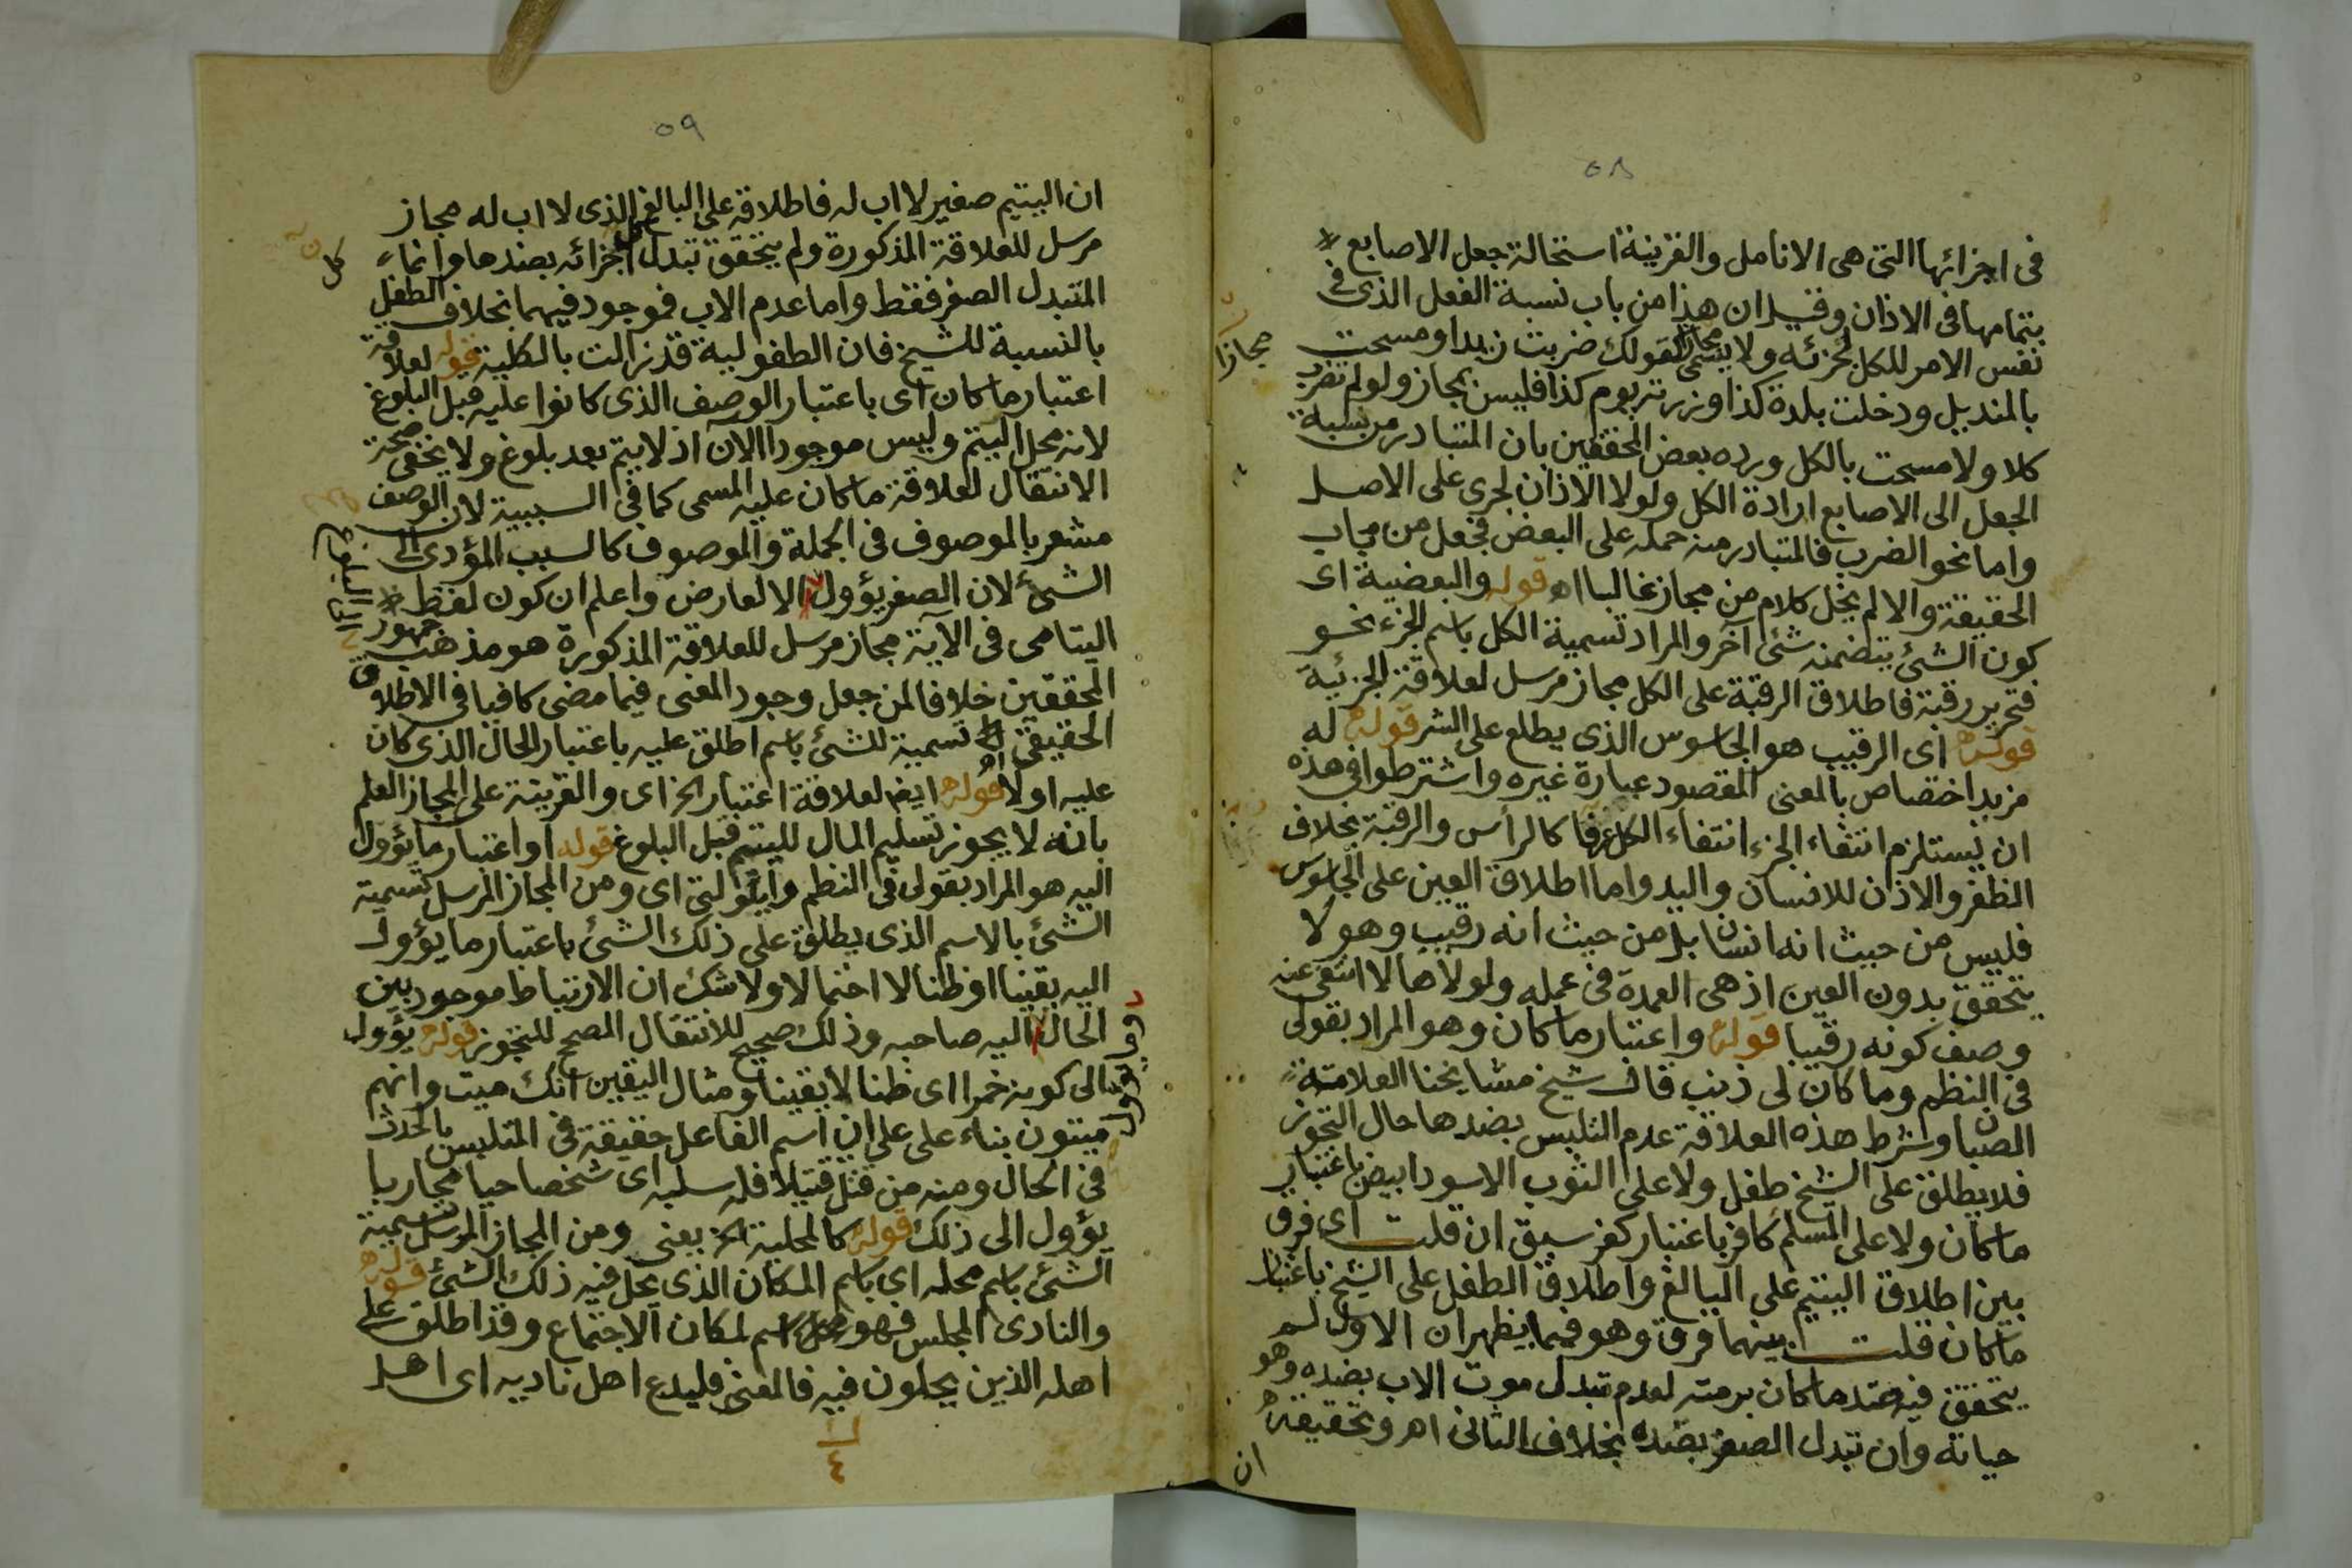 ٥٨
فى اجزائها التى هى الانامل والقرينة استحالة جعل الاصابع
بتمامها فى الاذان وقيل ان هذا من باب نسبة الفعل الذى فى
نفس الامر للكل لجزئه ولا يسمى كقولك ضربت زيدا ومسحت
مجازا
بالمنديل ودخلت بلدة كذا وزرته يوم كذا فليس بمجاز ولو لم تضرب
كلا ولا مسحت بالكل ورده بعض المحققين بان المتبادر من نسبة
الجعل الى الاصابع ارادة الكل ولولا الاذان لجرى على الاصل
واما نحو الضرب فالمتبادر منه حمله على البعض فجعل من مجاب
الحقيقة والا لم يخل كلام من مجاز غالبا اه قوله والبعضية اى
كون الشئ يتضمنه شئ آخر والمراد تسمية الكل باسم الجزء نحو
فتحرير رقبة فاطلاق الرقبة على الكل مجاز مرسل لعلاقة الجزئية
قوله اى الرقيب هو الجاسوس الذى يطلع على الشر قوله له
مزيد اختصاص بالمعنى المقصود عبارة غيره واشترطوا فى هذه
ان يستلزم انتفاء الجزء انتفاء الكل عرفا كالرأس والرقبة بخلاف
الظفر والاذن للانسان واليد واما اطلاق العين على الجاسوس
فليس من حيث انه انسان بل من حيث انه رقيب وهو لا
يتحقق بدون العين اذ هى العمدة فى عمله ولولاها لا انتفى عنه
وصف كونه رقيبا قوله واعتبار ما كان وهو المراد بقولى
فى النظم وما كان لى ذنب قال شيخ مشايخنا العلامة
الصبان وشرط هذه العلاقة عدم التلبس بضدها حال التجوز
فلا يطلق على الشيخ طفل ولا على الثوب الاسود ابيض باعتبار
ما كان ولا على المسلم كافر باعتبار كفر سبق ان قلت اى فرق
بين اطلاق اليتيم على البالغ واطلاق الطفل على الشيخ باعتبار
ما كان قلت بينهما فرق وهو فيما يظهر ان الاول لم
يتحقق فيه ضد ما كان برمته لعدم تبدل موت الاب بضده وهو
حياته وان تبدل الصغر بضده بخلاف الثانى اه وتحقيقه
ان
٥٩
ان اليتيم صغير لا اب له فاطلاقه على البالغ الذى لا اب له مجاز
مرسل للعلاقة المذكورة ولم يتحقق تبدل كل اجزائه بضدها وانماء
كل
المتبدل الصغر فقط واما عدم الاب فموجود فيهما بخلاف الطفل
بالنسبة للشيخ فان الطفولية قد زالت بالكلية قوله لعلاقة
اعتبار ما كان اى باعتبار الوصف الذى كانوا عليه قبل البلوغ
لانه محل اليتم وليس موجودا الآن اذ لا يتم بعد بلوغ ولا يخفى صحة
الانتقال لعلاقة ما كان عليه المسمى كما فى السببية لان الوصف
مشعر بالموصوف فى الجملة والموصوف كالسبب المؤدى الى
الشئ لان الصغر يؤول الا لعارض واعلم ان كون لفظ
الى البلوغ
اليتامى فى الآية مجاز مرسل للعلاقة المذكورة هو مذهب جمهور
المحققين خلافا لمن جعل وجود المعنى فيما مضى كافيا فى الاطلاق
الحقيقى تسمية للشئ باسم اطلق عليه باعتبار الحال الذى كان
عليه اولا اه قوله ايض لعلاقة اعتبار الخ اى والقرينة على المجاز العلم
بانه لا يجوز تسليم المال لليتيم قبل البلوغ قوله او اعتبار ما يؤول
اليه هو المراد بقولى فى النظم وايلولتى اى ومن المجاز المرسل تسمية
الشئ بالاسم الذى يطلق على ذلك الشئ باعتبار ما يؤول
اليه يقينا او ظنا لا احتمالا ولا شك ان الارتباط موجود بين
الحال اليه صاحبه وذلك صحيح للانتقال المصحح للتجوز قوله يؤول
الى كونه خمرا اى ظنا لا يقينا ومثال اليقين انك ميت وانهم
ميتون بناء على على ان اسم الفاعل حقيقة فى المتلبس بالحدث
فى الحال ومنه من قتل قتيلا فله سلبه اى شخصا حيا مجاربا
يؤول الى ذلك قوله كالمحلية الخ يعنى ومن المجاز المرسل تسمية
الشئ باسم محله اى باسم المكان الذى يحل فيه ذلك الشئ قوله
والنادى المجلس فهو اسم لمكان الاجتماع وقد اطلق على
اهله الذين يحلون فيه فالمعنى فليدع اهل ناديه اى اهل
٤